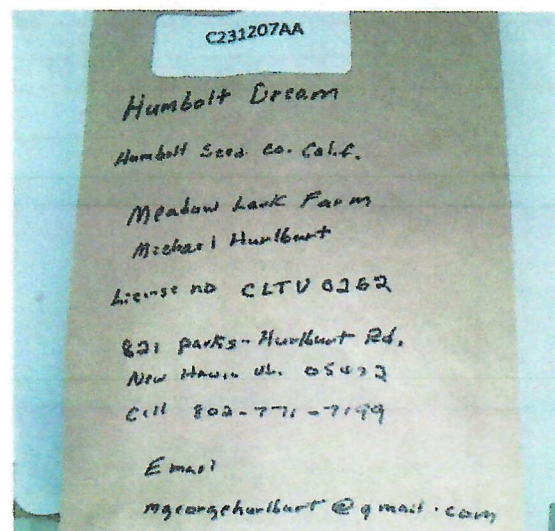 C231207AA
Humbolt Dream
Humbolt Seed Co. Calif.
Meadow Lark Farm
Michael Hurlburt
License no CLTV 0262
821 Parks-Hurlburt Rd.
New Haven Vt. 05472
Cell 802-771-7199
Email
mgeorgehurlburt@gmail.com